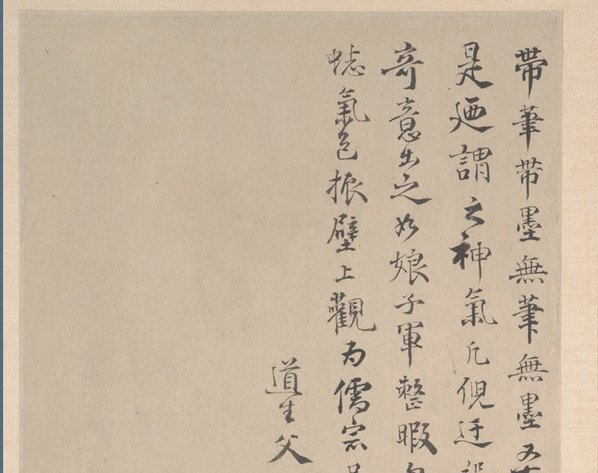 帶筆帶墨無筆無墨五
是迺謂之神氣凡倪迂
奇意出之如娘子軍整暇
氣色振壁上觀為儒宗
道生父